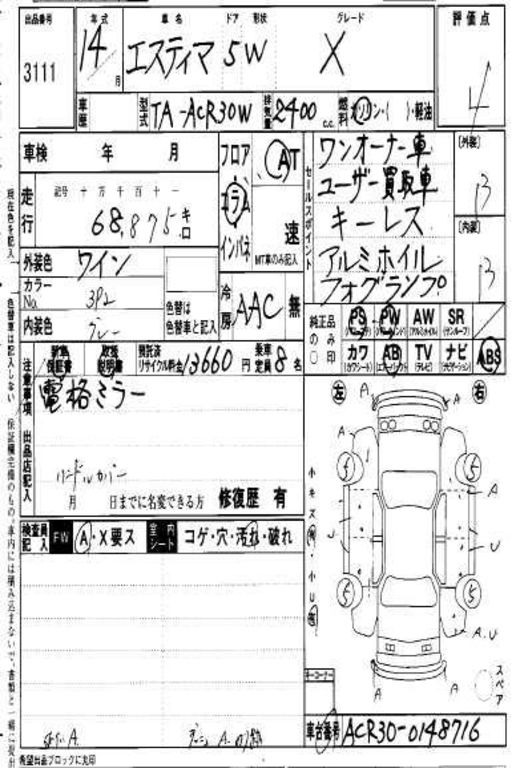 出品番号
3111
年式
14
月
車名
エスティマ
ドア
5
形状
W
グレード
X
評価点
4
車歴
型式
TA-ACR30W
排気量
2400
c.c.
燃料
ガソリン・( )・軽油
車検 年 月
走行
記号 十 万 千 百 十 一
68,875
キロ
フロア
コラム
インパネ
AT
速
MT車のみ記入
セールスポイント
ワンオーナー車
ユーザー買取車
キーレス
アルミホイル
フォグランプ
[外装]
B
[内装]
B
外装色
ワイン
カラーNo.
3P2
内装色
グレー
色替は
色替車と記入
冷房
AAC
無
純正品のみ○印
PS
(パワーステア)
PW
(パワーウインド)
AW
(アルミホイル)
SR
(サンルーフ)
カワ
(カワシート)
AB
(エアーバック)
TV
(テレビ)
ナビ
(ナビゲーション)
ABS
新車保証書
取扱説明書
預託済
リサイクル料金
13660
円
乗車定員
8
名
注意事項 出品店記入
電格ミラー
ハンドルカバー
月 日までに名変できる方
修復歴 有
検査員記入
FW
A・X要ス
室内
シート
コゲ・穴・汚れ・破れ
左
右
A
A
A
5
5
A
U
U
5
5
A.U
A
A
スペア
小キズ有・小U有
コーナー
車台番号
ACR30-0148716
希望出品ブロックに丸印
現在色を記入。色替車は記入しない。
保証欄完備のもの
車内には積み込まないで、書類と一緒に提出